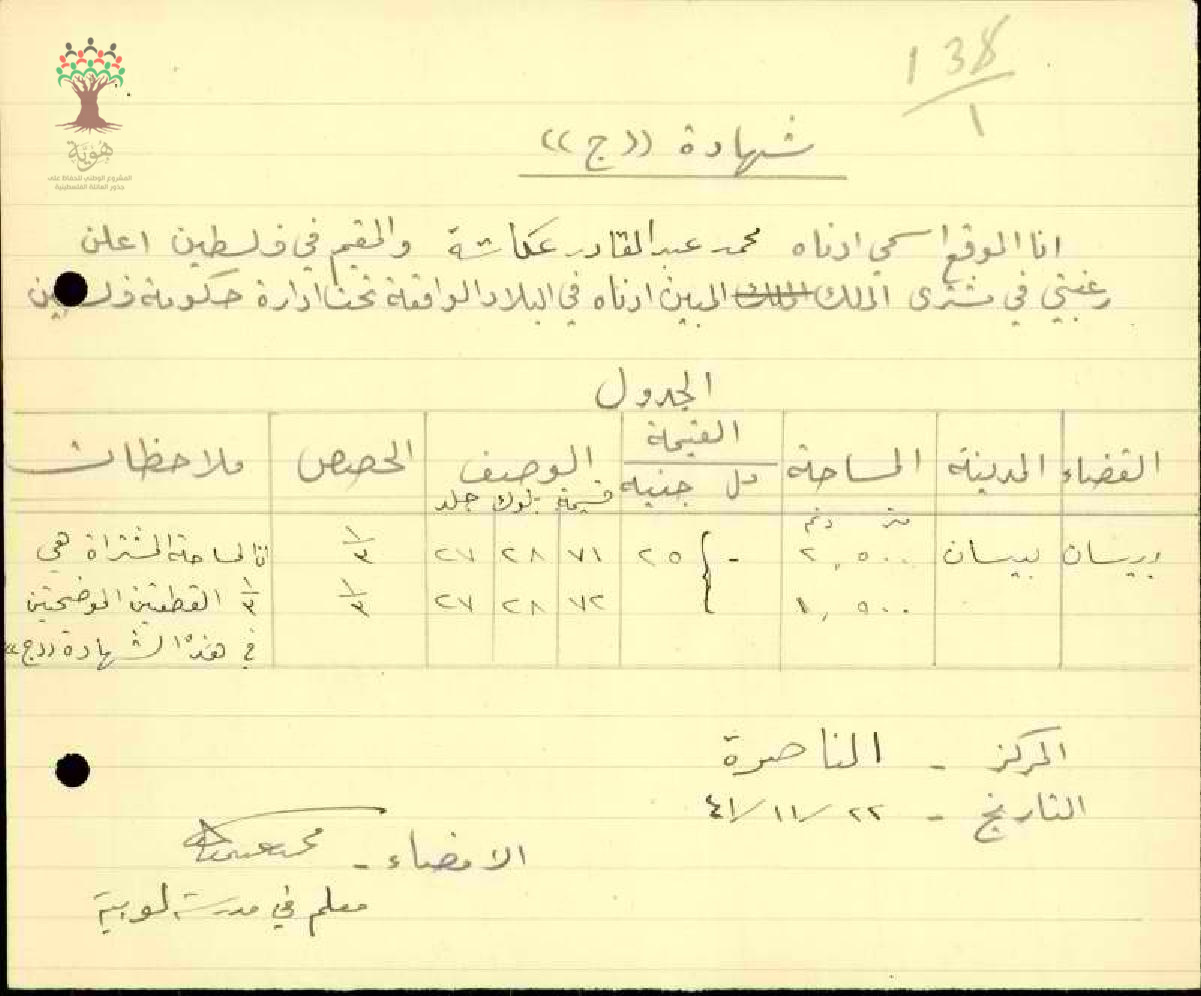 138
١
هوية
المشروع الوطني للحفاظ على
جذور العائلة الفلسطينية
شهادة ((ج))
انا الموقع اسمي ادناه محمد عبدالقادر عكاشة والمقيم في فلسطين اعلن
رغبتي في مشترى الملك الملك المبين ادناه في البلاد الواقعة تحت ادارة حكومة فلسطين
الجدول
القضاء المدينة المساحة القيمة الوصيف الحصص ملاحظات
مل جنيه قسيمة بلوك جلد
متر دنم
بيسان بيسان ٢,٥٠٠ - ٢٥ ٧١ ٢٨ ٢٧ ١/٣ ان المساحة المشتراة هي
١,٥٠٠ ٧٢ ٢٨ ٢٧ ١/٣ ١/٣ القطعتين الموضحتين
في هذه الشهادة ((ج))
المركز - الناصرة
التاريخ - ٢٢/١١/٤١
الامضاء - محمد عكاشة
معلم في مدرسة لوبية